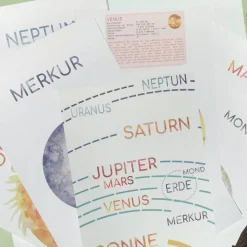 NEPTUN
MERKUR
VENUS
NEPTUN
URANUS
SATURN
JUPITER
MARS
MOND
ERDE
VENUS
MERKUR
SONNE